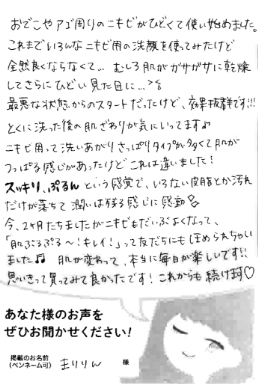 おでこやアゴ周りのニキビがひどくて使い始めました。
これまでいろんなニキビ用の洗顔を使ってみたけど
全然良くならなくて… むしろ肌がガサガサに乾燥
してさらにひどい見た目に…
最悪な状態からのスタートだったけど、効果抜群です!!!
とくに洗った後の肌ざわりが気にいってます♪
ニキビ用って洗いあがりさっぱりタイプが多くて肌が
つっぱる感じがあったけどこれは違いました!
スッキリ、ぷるんという感覚で、いらない皮脂とか汚れ
だけが落ちて潤いは残る感じに感動
今、2ヶ月たちましたがニキビもだいぶよくなって、
「肌ぷるぷる〜!キレイ!」って友だちにもほめられちゃい
ました♪ 肌が変わって、本当に毎日が楽しいです!!
思いきって買ってみて良かったです!これからも続けます♡
あなた様のお声を
ぜひお聞かせください!
掲載のお名前
(ペンネーム可)
まりりん 様